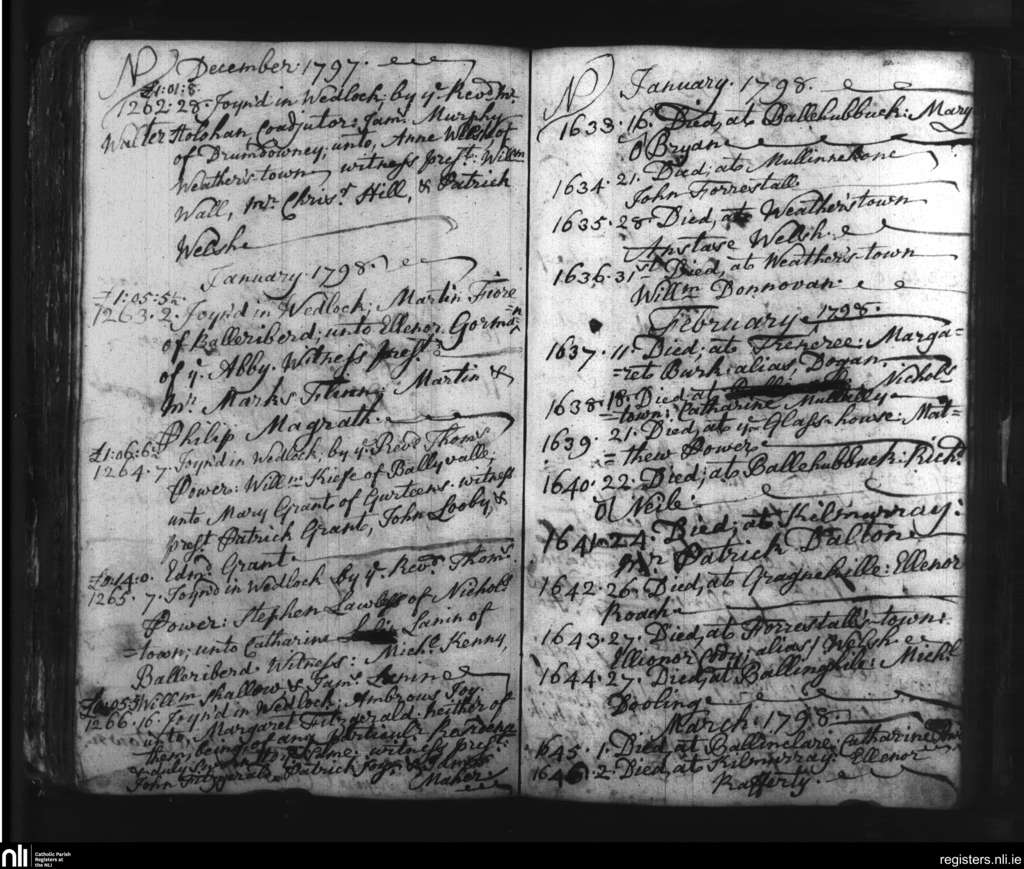 N December 1797.
£1:01:8.
1262. 28. Joyn'd in Wedlock; by yᵉ Revᵈ Mʳ
Walter Holohan Coadjutor: Jamˢ Murphy
of Drumdowney; unto, Anne Welsh of
Weather's town witness presᵗ: Willm
Wall, Mʳ Chrisʳ Hill, & Patrick
Welshe
January 1798.
£1:05:5½.
1263. 2. Joyn'd in Wedlock; Martin Fiore
of Balleriberd; unto Ellenor Gorman
of yᵉ Abby. Witness presᵗ
Mʳ Marks Flinn; Martin &
Philip Magrath.
£1:06:6½
1264. 7. Joyn'd in Wedlock, by yᵉ Revᵈ Thomˢ
Power: Willm Kiefe of Ballyvalle;
unto Mary Grant of Gurteens: witness
presᵗ Patrick Grant, John Looby, &
Edmᵈ Grant
£0:14:0.
1265. 7. Joyn'd in Wedlock by yᵉ Revᵈ Thomˢ
Power: Stephen Lawless of Nichols
=town; unto Catharine Lanin of
Balleriberd. Witness: Michˡ Kenny,
Willm Skallow & Jamˢ Lanin
1266. 16. Joyn'd in Wedlock; Ambrous Joy.
unto, Margaret Fitzgerald: neither of
them, being of any particulʳ Residence
witness presᵗ:
John Fitzgerald, Patrick Joy, & Edmᵈ
Maher
N January 1798.
1633. 16. Died, at Ballehubbuck: Mary
O Bryan
1634. 21. Died; at Mullinnekone
John Forrestall
1635. 28. Died, at Weatherstown
Anstase Welsh.
1636. 31ˢᵗ Died, at Weather's-town
Willm Donnovan.
February 1798.
1637. 11. Died; at Treneree: Marga=
=ret Burk: alias, Dogan.
1638. 18. Died; at Nichols
=town; Catharine Mullally
1639. 21. Died, at yᵉ Glass-house: Mat=
=thew Power
1640. 22. Died; at Ballehubbuck: Richᵈ
O Neile
1641. 24. Died; at Kilmurray:
Mʳ Patrick Dalton
1642. 26. Died, at Gragnekille: Ellenor
Roach
1643. 27. Died, at Forrestall's-town:
Ellionor Cody; alias/ Welsh
1644. 27. Died, at Ballingkile: Michˡ
Dooling
March 1798.
1645. 1. Died, at Ballinclare; Catharine
1646. 2. Died, at Kilmurray: Ellenor
Rafferty.
nli Catholic Parish
Registers at
the NLI
registers.nli.ie